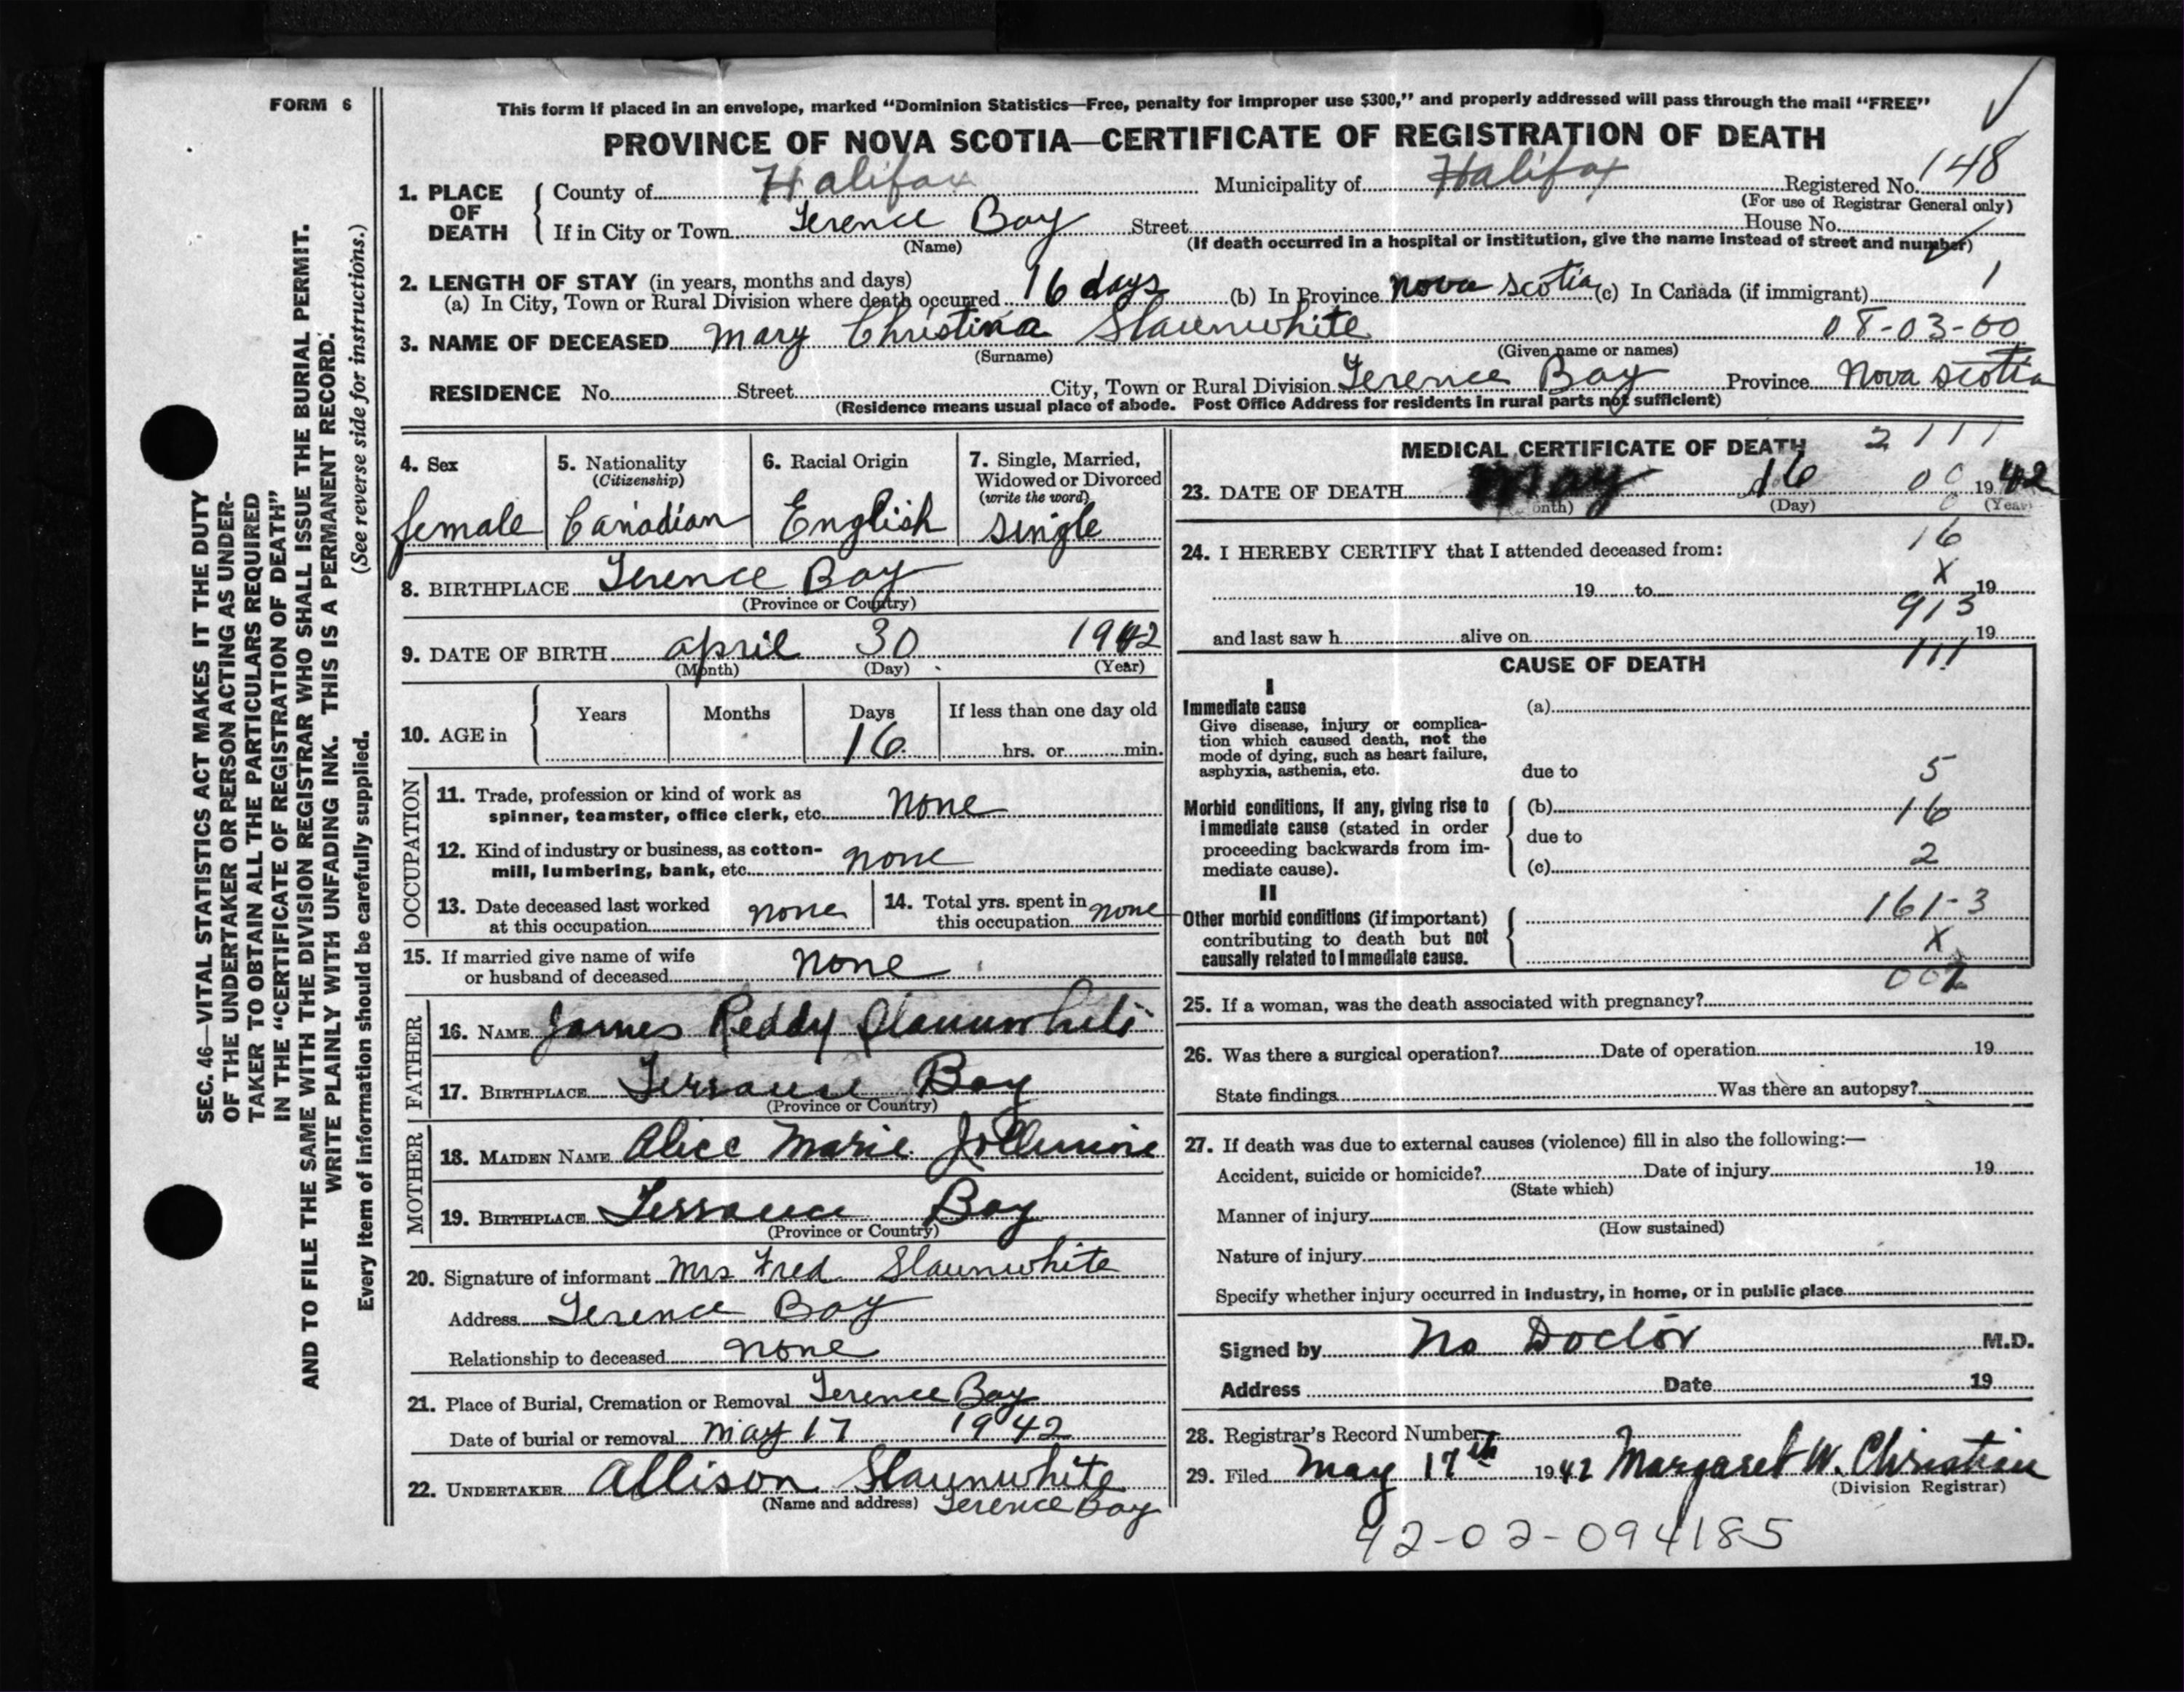 FORM 6
This form if placed in an envelope, marked “Dominion Statistics—Free, penalty for improper use $300,” and properly addressed will pass through the mail “FREE”
PROVINCE OF NOVA SCOTIA—CERTIFICATE OF REGISTRATION OF DEATH
1. PLACE OF DEATH { County of Halifax Municipality of Halifax Registered No. 148
(For use of Registrar General only)
If in City or Town Terence Bay Street House No.
(Name) (If death occurred in a hospital or institution, give the name instead of street and number)
2. LENGTH OF STAY (in years, months and days)
(a) In City, Town or Rural Division where death occurred 16 days (b) In Province Nova Scotia (c) In Canada (if immigrant) 1
3. NAME OF DECEASED Mary Christina Slaunwhite 08-03-00
(Surname) (Given name or names)
RESIDENCE No. Street City, Town or Rural Division Terence Bay Province Nova Scotia
(Residence means usual place of abode. Post Office Address for residents in rural parts not sufficient)
4. Sex
female
5. Nationality
(Citizenship)
Canadian
6. Racial Origin
English
7. Single, Married,
Widowed or Divorced
(write the word)
single
8. BIRTHPLACE Terence Bay
(Province or Country)
9. DATE OF BIRTH April 30 1942
(Month) (Day) (Year)
10. AGE in { Years Months Days If less than one day old
16 hrs. or min.
OCCUPATION
11. Trade, profession or kind of work as
spinner, teamster, office clerk, etc. none
12. Kind of industry or business, as cotton-
mill, lumbering, bank, etc. none
13. Date deceased last worked
at this occupation none
14. Total yrs. spent in
this occupation none
15. If married give name of wife
or husband of deceased none
FATHER
16. NAME James Reddy Slaunwhite
17. BIRTHPLACE Terrance Bay
(Province or Country)
MOTHER
18. MAIDEN NAME Alice Marie Jollimore
19. BIRTHPLACE Terrance Bay
(Province or Country)
20. Signature of informant Mrs Fred Slaunwhite
Address Terence Bay
Relationship to deceased none
21. Place of Burial, Cremation or Removal Terence Bay
Date of burial or removal May 17 1942
22. UNDERTAKER Allison Slaunwhite
(Name and address) Terence Bay
MEDICAL CERTIFICATE OF DEATH 2 111
23. DATE OF DEATH May 16 00 1942
onth) (Day) 0 (Year)
24. I HEREBY CERTIFY that I attended deceased from: 16
19 to X 19
913
and last saw h alive on 19
CAUSE OF DEATH 111
I
Immediate cause (a)
Give disease, injury or complica-
tion which caused death, not the
mode of dying, such as heart failure,
asphyxia, asthenia, etc. due to 5
Morbid conditions, if any, giving rise to (b) 16
immediate cause (stated in order due to
proceeding backwards from im- 2
mediate cause). (c)
II
Other morbid conditions (if important) 161-3
contributing to death but not X
causally related to immediate cause.
25. If a woman, was the death associated with pregnancy?
26. Was there a surgical operation? Date of operation 19
State findings Was there an autopsy?
27. If death was due to external causes (violence) fill in also the following:—
Accident, suicide or homicide? Date of injury 19
(State which)
Manner of injury
(How sustained)
Nature of injury
Specify whether injury occurred in industry, in home, or in public place
Signed by No Doctor M.D.
Address Date 19
28. Registrar's Record Number
29. Filed May 17th 1942 Margaret W. Christian
(Division Registrar)
92-02-094185
SEC. 46—VITAL STATISTICS ACT MAKES IT THE DUTY
OF THE UNDERTAKER OR PERSON ACTING AS UNDER-
TAKER TO OBTAIN ALL THE PARTICULARS REQUIRED
IN THE “CERTIFICATE OF REGISTRATION OF DEATH”
AND TO FILE THE SAME WITH THE DIVISION REGISTRAR WHO SHALL ISSUE THE BURIAL PERMIT.
WRITE PLAINLY WITH UNFADING INK. THIS IS A PERMANENT RECORD.
Every item of information should be carefully supplied. (See reverse side for instructions.)